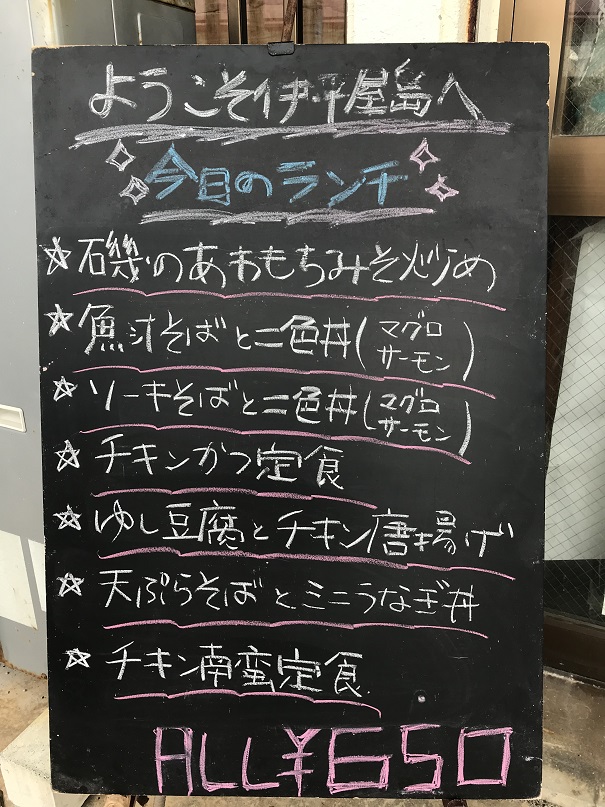 ようこそ伊平屋島へ
今日のランチ
☆磯のあわもちみそ炒め
☆魚汁そばと二色丼(マグロ サーモン)
☆ソーキそばと二色丼(マグロ サーモン)
☆チキンかつ定食
☆ゆし豆腐とチキン唐揚げ
☆天ぷらそばとミニうなぎ丼
☆チキン南蛮定食
ALL¥650